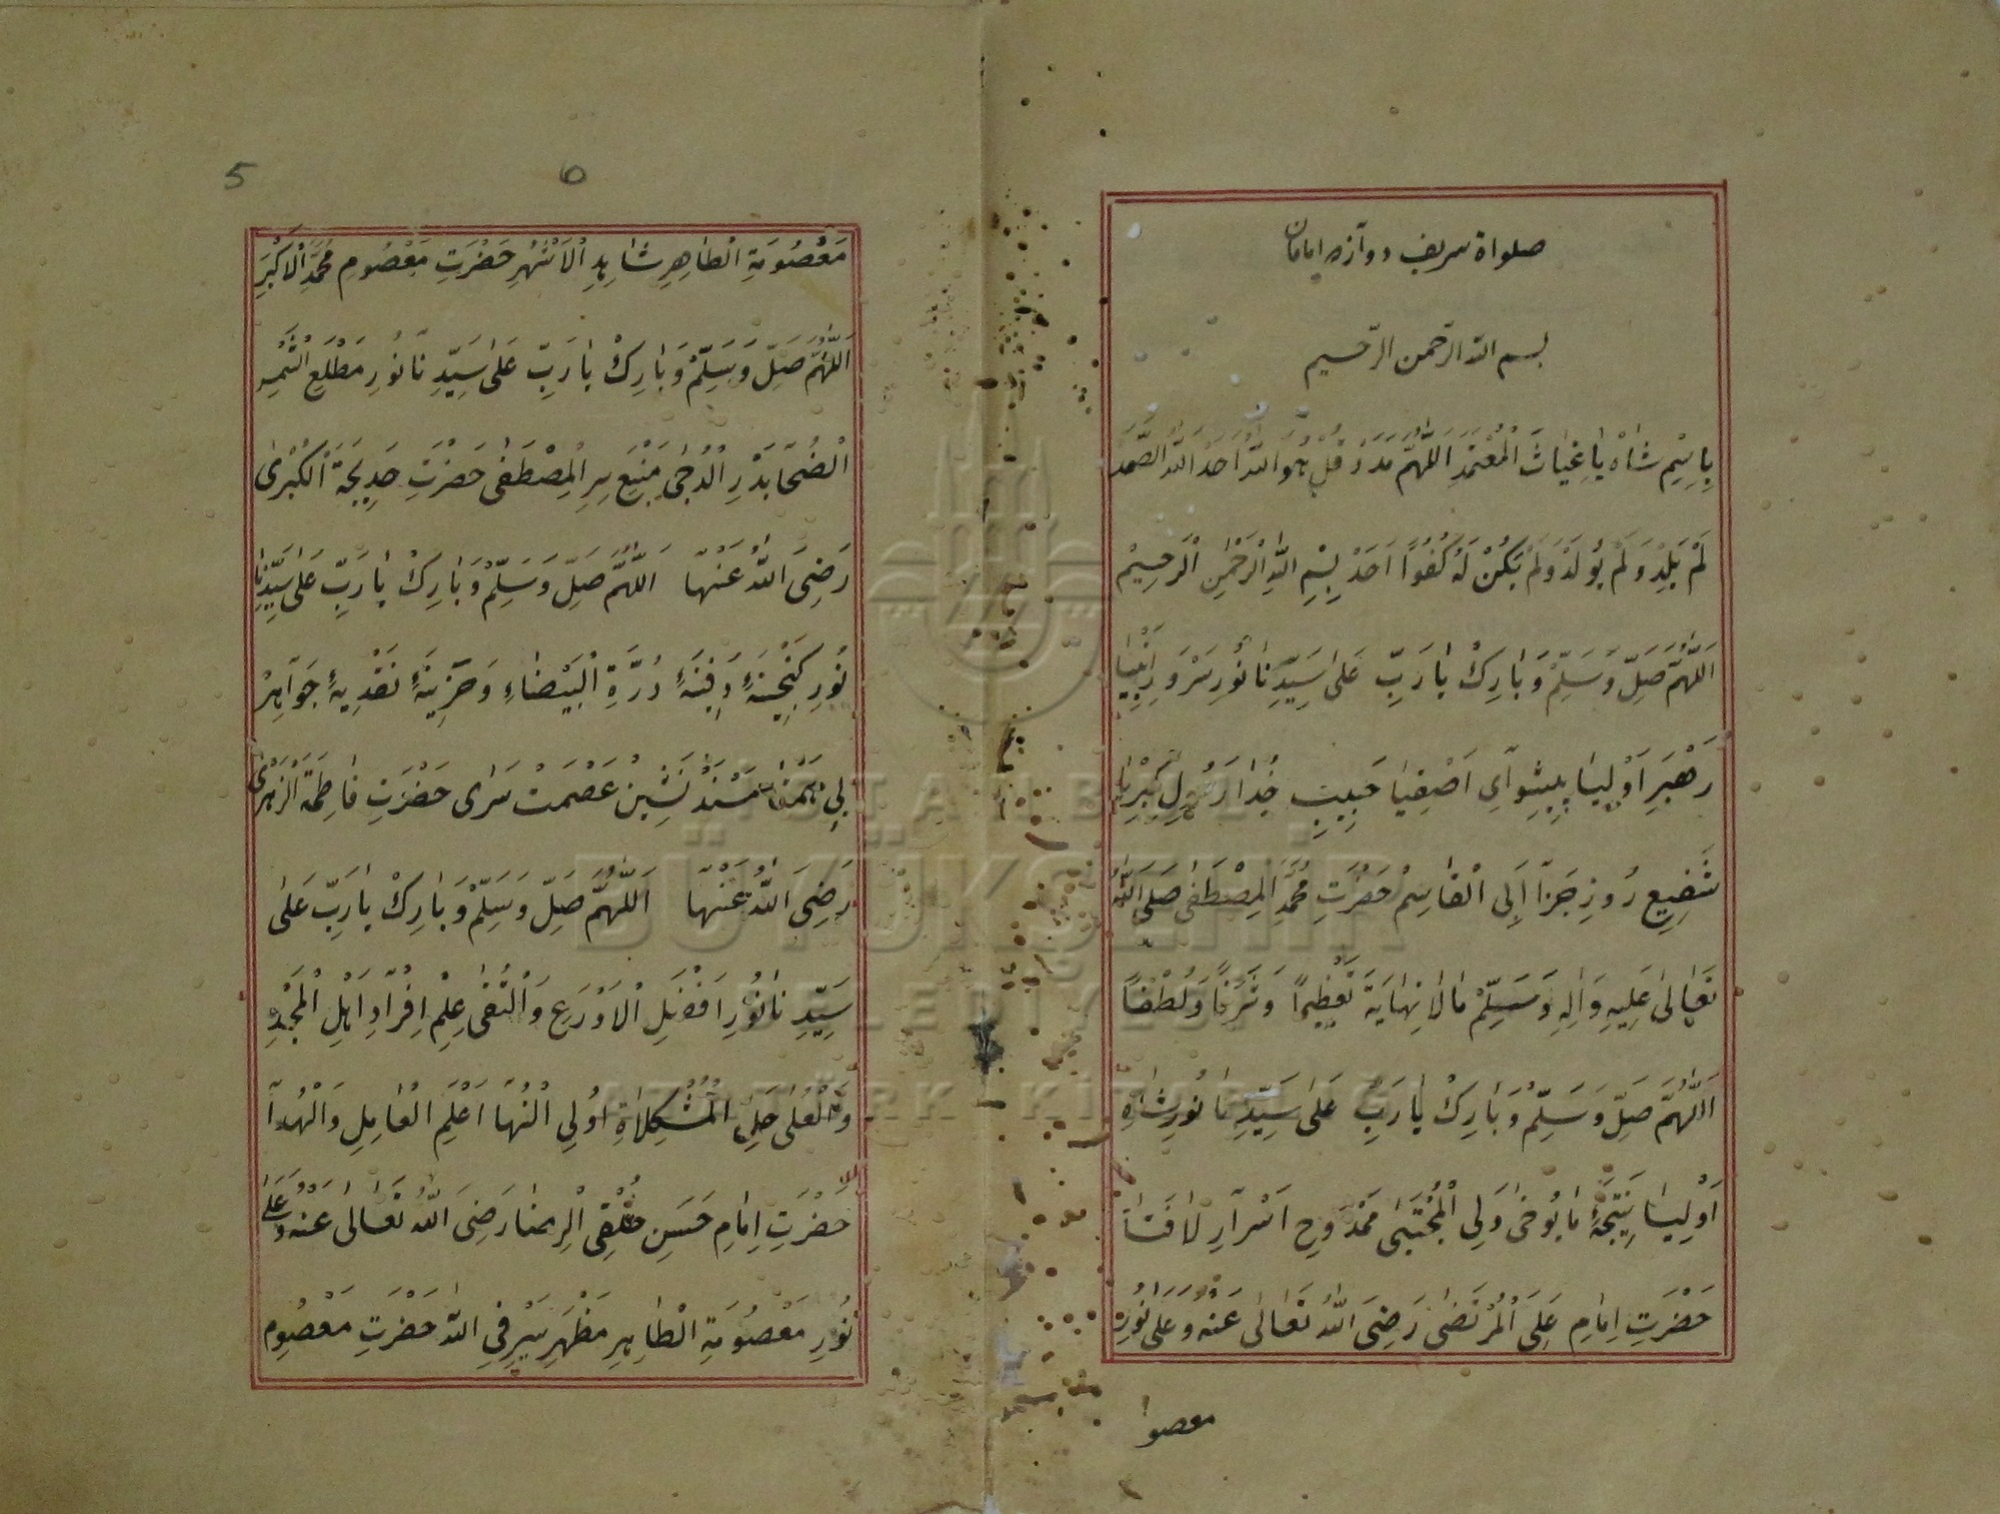 صلواة شريف دوآزده امامان
بسم الله الرّحمن الرّحيم
بِاسْمِ شَاهْ يَا غِيَاثَ الْمُعْتَمَدِ اَللّٰهُمَّ مَدَدْ قُلْ هُوَ اللّٰهُ اَحَدْ اَللّٰهُ الصَّمَدْ
لَمْ يَلِدْ وَلَمْ يُولَدْ وَلَمْ يَكُنْ لَهُ كُفُوًا اَحَدْ بِسْمِ اللّٰهِ الرَّحْمٰنِ الرَّحِيمْ
اَللّٰهُمَّ صَلِّ وَسَلِّمْ وَبَارِكْ يَا رَبِّ عَلٰى سَيِّدِنَا نُورِ سَرْوَرِ اَنْبِيَا
رَهْبَرِ اَوْلِيَا پِيشِوَآىِ اَصْفِيَا حَبِيبِ خُدَا رَسُولِ كِبْرِيَا
شَفِيعِ رُوزِ جَزَآ اَبِى الْقَاسِمْ حَضْرَتِ مُحَمَّدِ الْمِصْطَفٰى صَلَّى اللّٰهُ
تَعَالٰى عَلَيْهِ وَاٰلِهِ وَسَلِّمْ مَا لَا نِهَايَةَ تَعْظِيمًا وَشَرَفًا وَلُطْفًا
اَللّٰهُمَّ صَلِّ وَسَلِّمْ وَبَارِكْ يَا رَبِّ عَلٰى سَيِّدِنَا نُورِ شَاهِ
اَوْلِيَا نَتِيجَهِٔ مَا يُوحٰى وَلِى الْمُجْتَبٰى مَمْدُوحِ اَسْرَارِ لَا فَتَا
حَضْرَتِ اِمَامِ عَلِىَ الْمُرْتَضٰى رَضِىَ اللّٰهُ تَعَالٰى عَنْهُ وَعَلٰى نُورِ
معصوا
5
٥
مَعْصُومَةِ الطَاهِرِ شَاهِدِ الْاَشْهَرِ حَضْرَتِ مَعْصُومِ مُحَمَّدِ الْاَكْبَرِ
اَللّٰهُمَّ صَلِّ وَسَلِّمْ وَبَارِكْ يَا رَبِّ عَلٰى سَيِّدِنَا نُورِ مَطْلَعِ الشَّمْسِ
الْضُحَا بَدْرِ الْدُجٰى مَنْبَعِ سِرِ الْمِصْطَفٰى حَضْرَتِ خَدِيجَةَ الْكُبْرٰى
رَضِىَ اللّٰهُ عَنْهَا اَللّٰهُمَّ صَلِّ وَسَلِّمْ وَبَارِكْ يَا رَبِّ عَلٰى سَيِّدِنَا
نُورِ كَنْجِينَهِٔ دَفِينَهِٔ دُرَّةِ الْبَيْضَاءِ وَخَزِينَهِٔ نَقْدِيهِٔ جَوَاهِرْ
بِى بَهْمَتَا مَسْنَدْ نَشِينْ عَصْمَتْ سَرَاى حَضْرَتِ فَاطِمَةَ الزَهْرٰى
رَضِىَ اللّٰهُ عَنْهَا اَللّٰهُمَّ صَلِّ وَسَلِّمْ وَبَارِكْ يَا رَبِّ عَلٰى
سَيِّدِنَا نُورِ اَفْضَلِ الْاَوْرَعِ وَالْتُقٰى عِلْمِ اِفْرَادِ اَهْلِ الْمَجْدِ
وَالْعُلٰى حَلِّ الْمُشْكِلَاةِ اُولِى الْنُهَا اَعْلَمِ الْعَامِلِ وَالْهُدَا
حَضْرَتِ اِمَامِ حَسَنِ خُلْقِى الْرِضَا رَضِىَ اللّٰهُ تَعَالٰى عَنْهُ وَعَلٰى
نُورِ مَعْصُومَةِ الْطَاهِرِ مَظْهَرِ سَيْرِ فِى اللّٰه حَضْرَتِ مَعْصُومِ
İSTANBUL
BÜYÜKŞEHİR
BELEDİYESİ
ATATÜRK KİTAPLIĞI